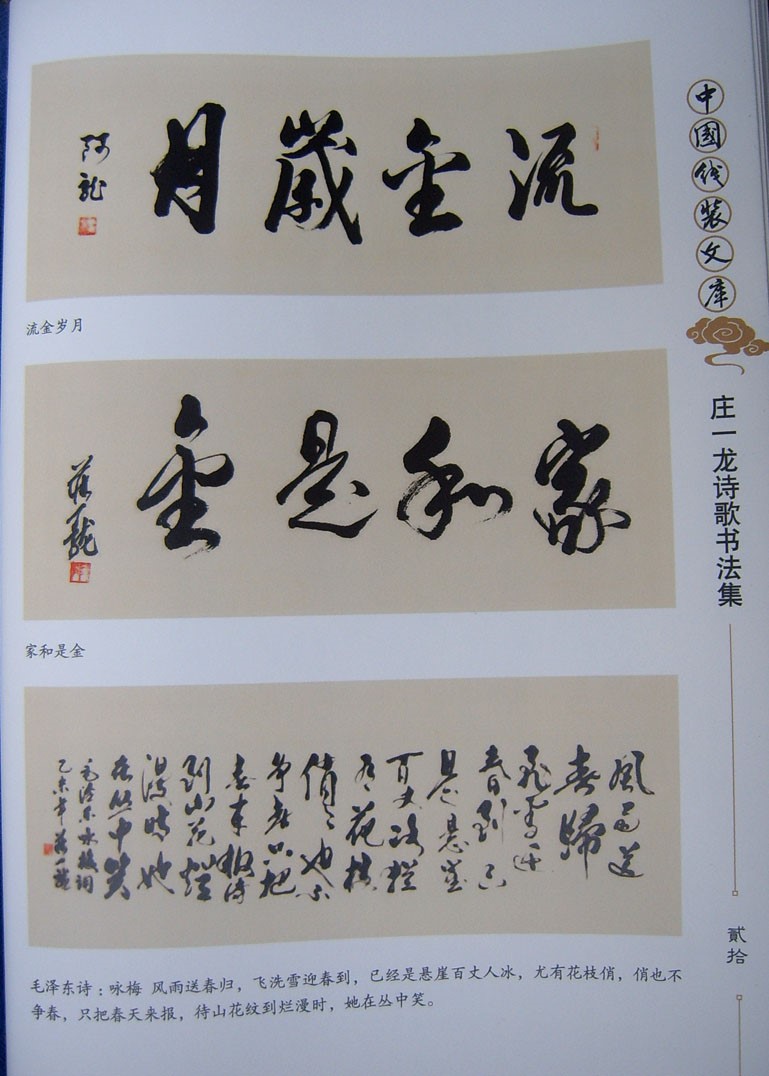 流金歲月
阿龍
流金岁月
家和是金
莊一龍
家和是金
風雨送
春歸
飛雪迎
春到已
是悬崖
百丈冰犹
有花枝
俏俏也不
争春只把
春来报待
到山花烂
漫時她
在丛中笑
毛泽东咏梅詞
乙未年莊一龍
毛泽东诗：咏梅 风雨送春归，飞洗雪迎春到，已经是悬崖百丈人冰，尤有花枝俏，俏也不
争春，只把春天来报，待山花纹到烂漫时，她在丛中笑。
中國线装文库
庄一龙诗歌书法集
贰拾